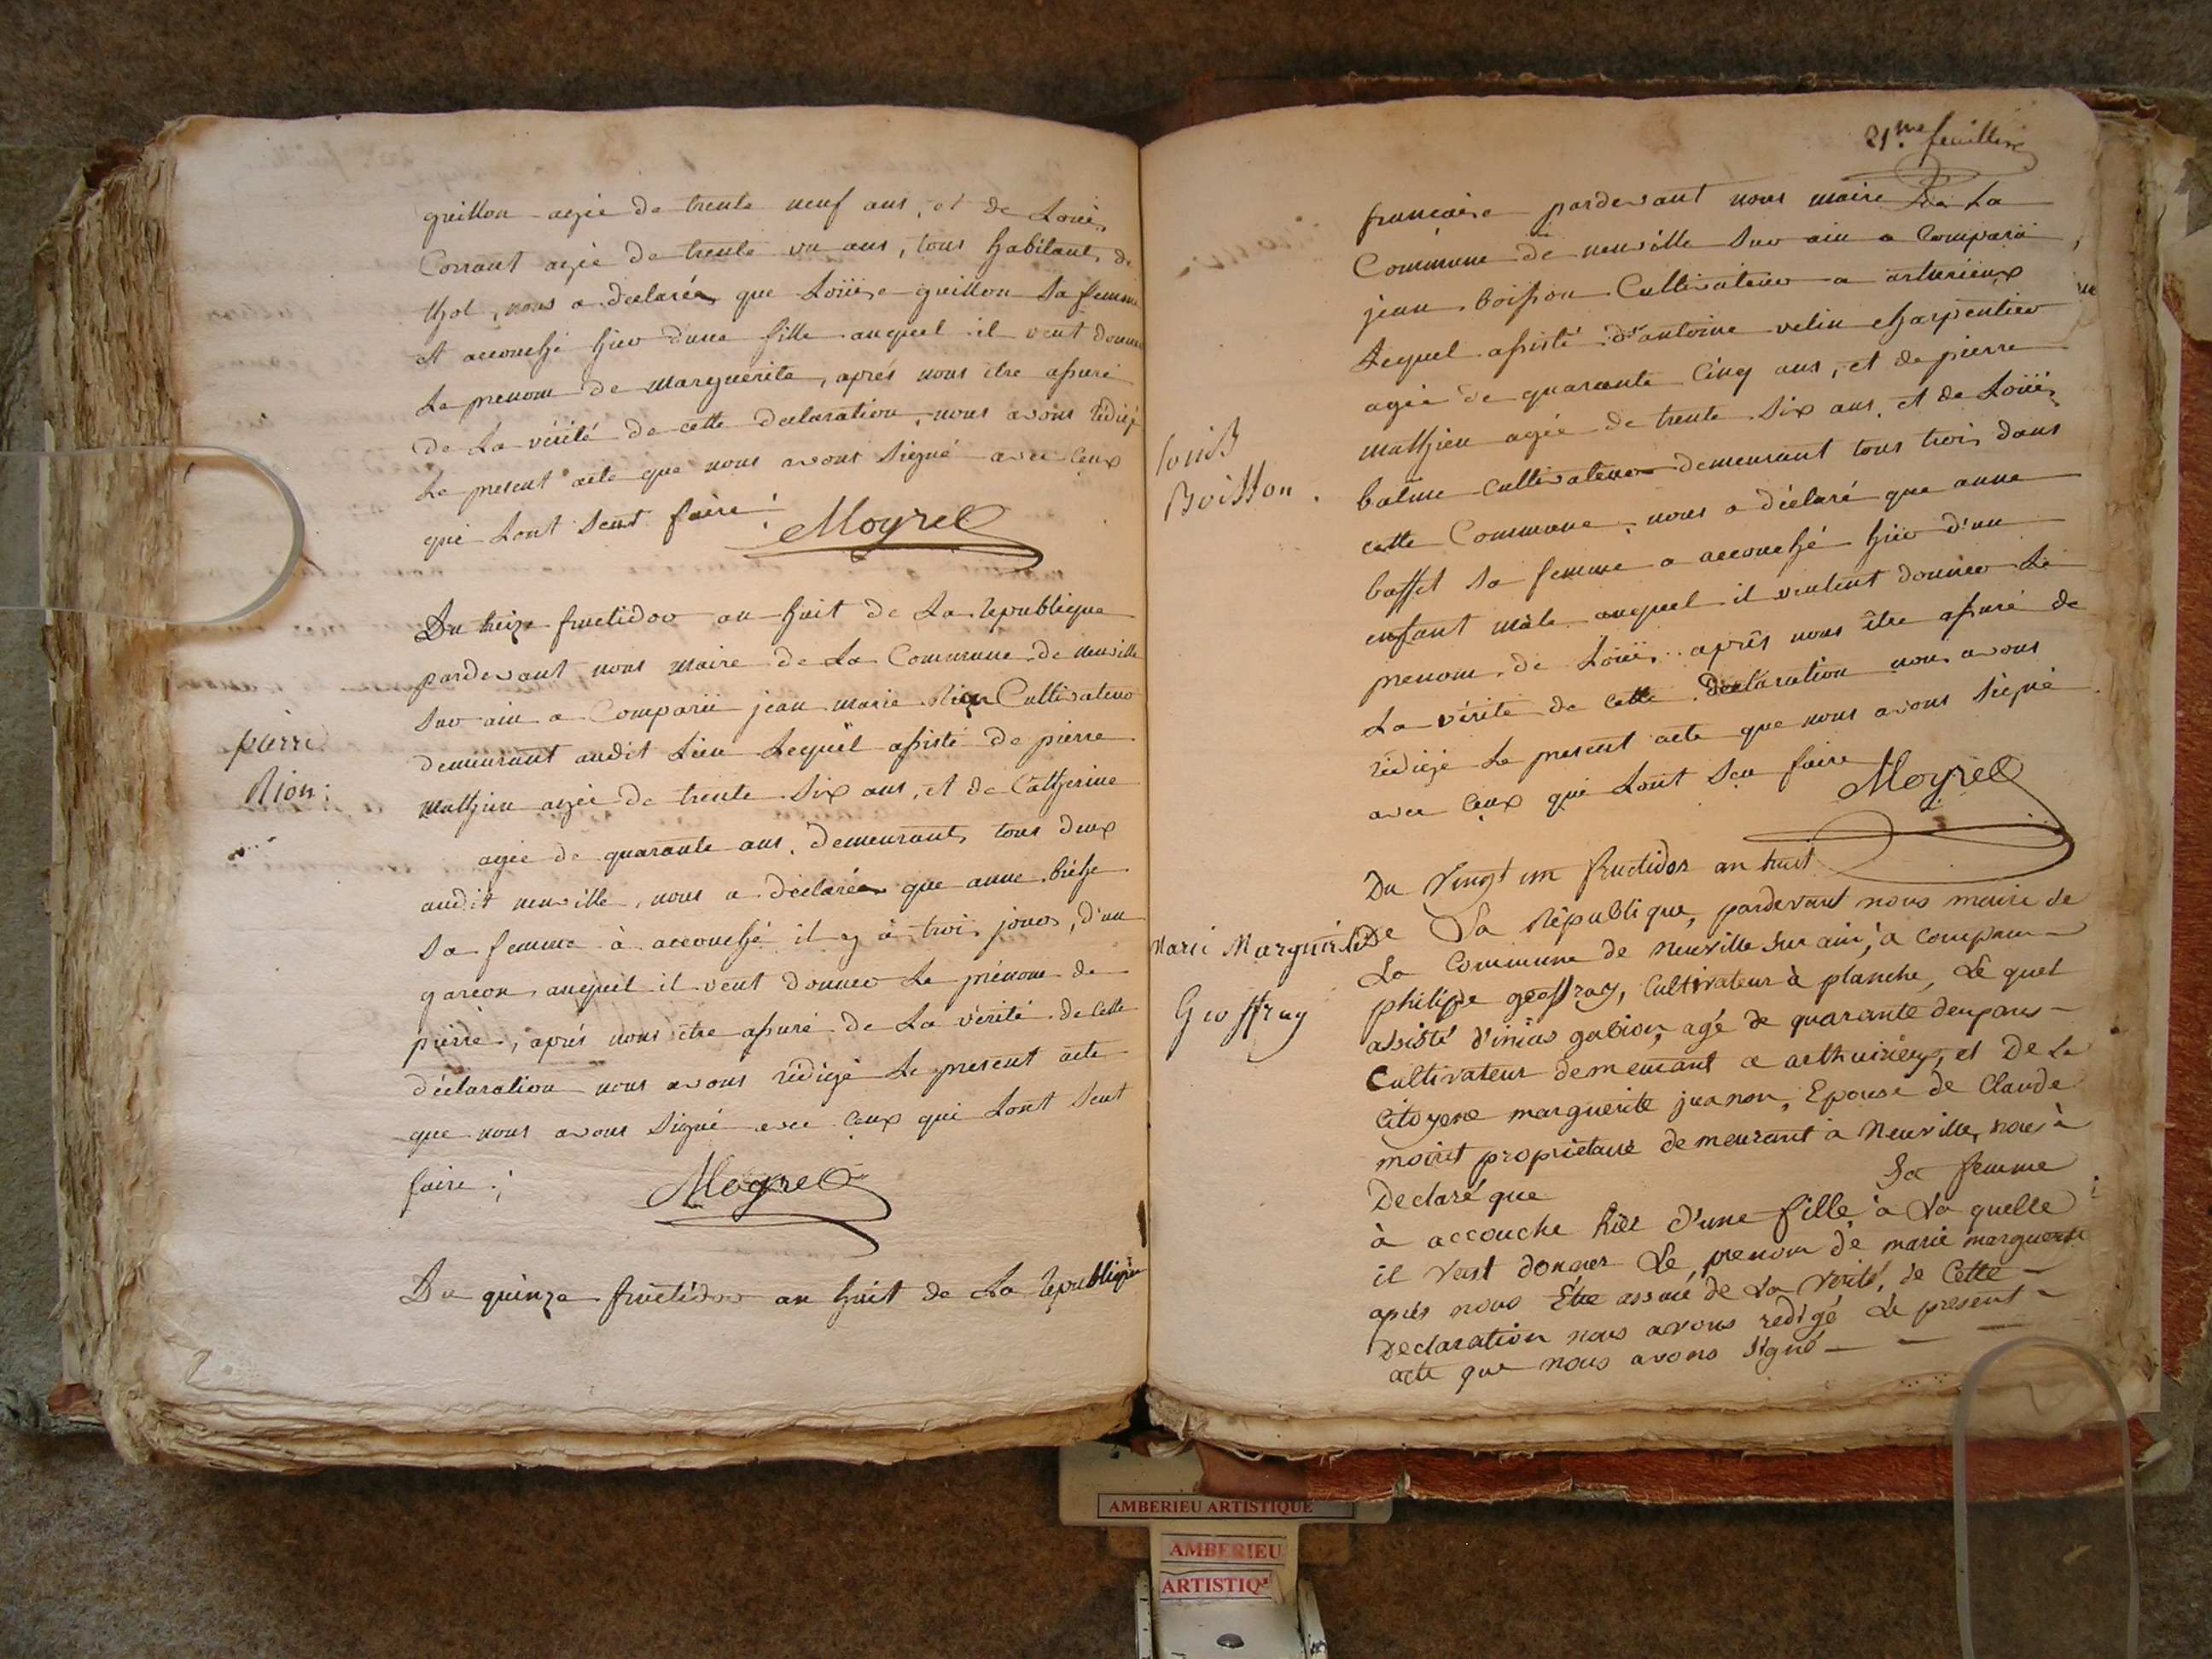 guillon agée de trente neuf ans, et de Louis
Corrant agée de trente un ans, tous habitants de
thol, nous a declarée que Loüise guillon Sa femme
et accouché hier d'une fille auquel il veut donner
Le prenom de marguerite, aprés nous être assuré
de La vérité de cette declaration, nous avons rédigé
Le present acte que nous avons Signé avec Ceux
qui Lont Seut faire
Moyret
Du treize fructidor an huit de La republique
pardevant nous maire de La Commune de neuville
Sur ain a Comparü jean marie Rion Cultivateur
demeurant audit Lieu Lequel assisté de pierre
mathieu agée de trente Six ans, et de Catherine
agée de quarante ans, demeurants tous deux
audit neuville, nous a déclarée que anne
Sa femme à accouché il y à trois jours, d'un
garcon auquel il veut donner Le prénom de
pierre, aprés nous être assuré de La vérité de Cette
déclaration nous avons rédigé Le present acte
que nous avons Signé avec Ceux qui Lont Seut
faire.
Moyret
pierre
Rion.
Du quinze fructidor an huit de La republique
21.me feuillet
francaise pardevant nous maire De La
Commune de neuville Sur ain a Comparü
jean boisson Cultivateur a arturieux
Lequel assisté d'antoine velin charpentier
agée de quarante Cinq ans, et de pierre
mathieu agée de trente Six ans, et de Loüis
balme Cultivateur demeurant tous trois dans
cette Commune, nous a déclaré que anne
buffet Sa femme a accouché hier d'un
enfant mâle auquel il veulent donner Le
prenom de Loüis. aprés nous être assuré de
La vérité de Cette déclaration nous avons
rédigé Le present acte que nous avons Signé
avec Ceux qui Lont Seu faire
Moyret
Louis
Boisson.
Du Vingt un fructidor an huit
De La République, pardevant nous maire de
La Commune de Neuville Sur ain, a comparu
philippe geoffray, Cultivateur à planche, Le quel
assisté gabion, agé de quarante deux ans
Cultivateur demeurant a arthurieux, et De La
Citoyene marguerite juanon, Epouse de Claude
moiret propriétaire demeurant à Neuville, nous à
Declaré que Sa femme
à accouche hier d'une fille à La quelle
il Veut donner Le prenom de marie marguerite
aprés nous Être assuré de La Vérité, de Cette
Declaration nous avons redigé Le present
acte que nous avons Signé
Marie Marguerite
Geoffray
AMBERIEU ARTISTIQUE
AMBERIEU
ARTISTIQ